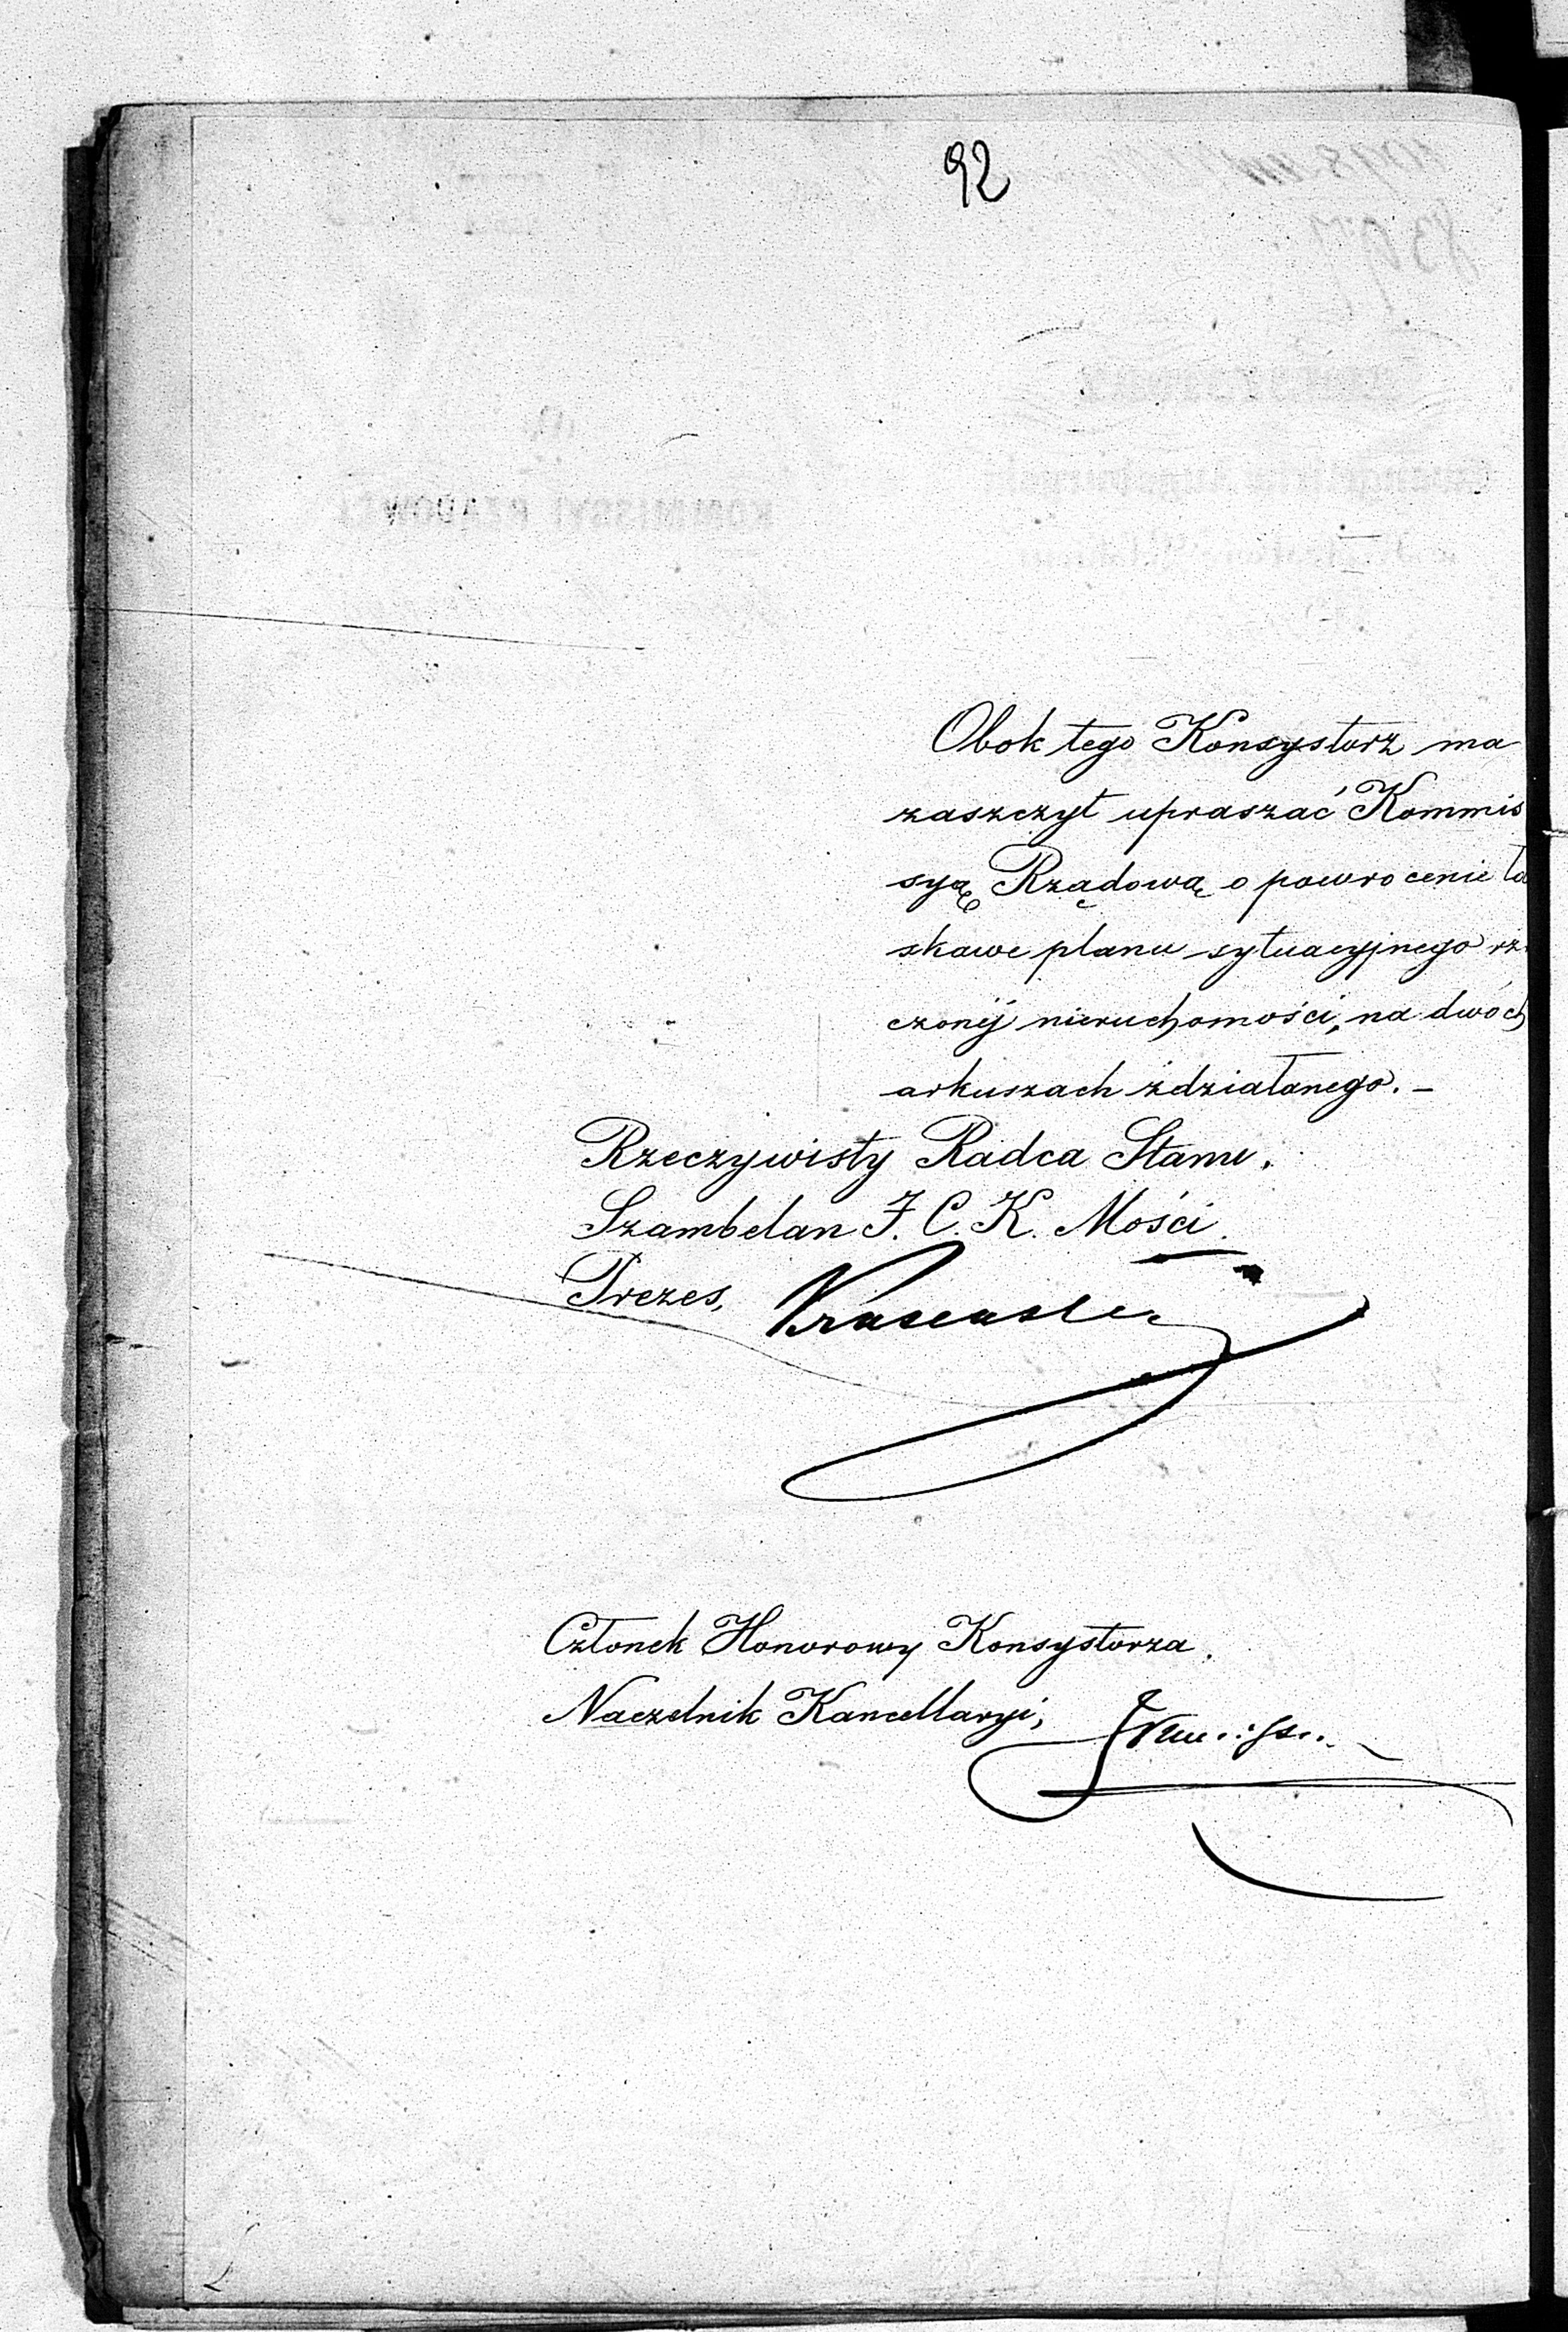 92
Obok tego Konsystorz ma
zaszczyt upraszać Kommis
syą Rządową o powrocenie ła
skawe planu sytuacyjnego rz
czonéj nieruchomości, na dwóch
arkuszach zdziałanego. –
Rzeczywisty Radca Stanu,
Szambelan J. C. K. Mości.
Prezes,
Członek Honorowy Konsystorza,
Naczelnik Kancellaryi,